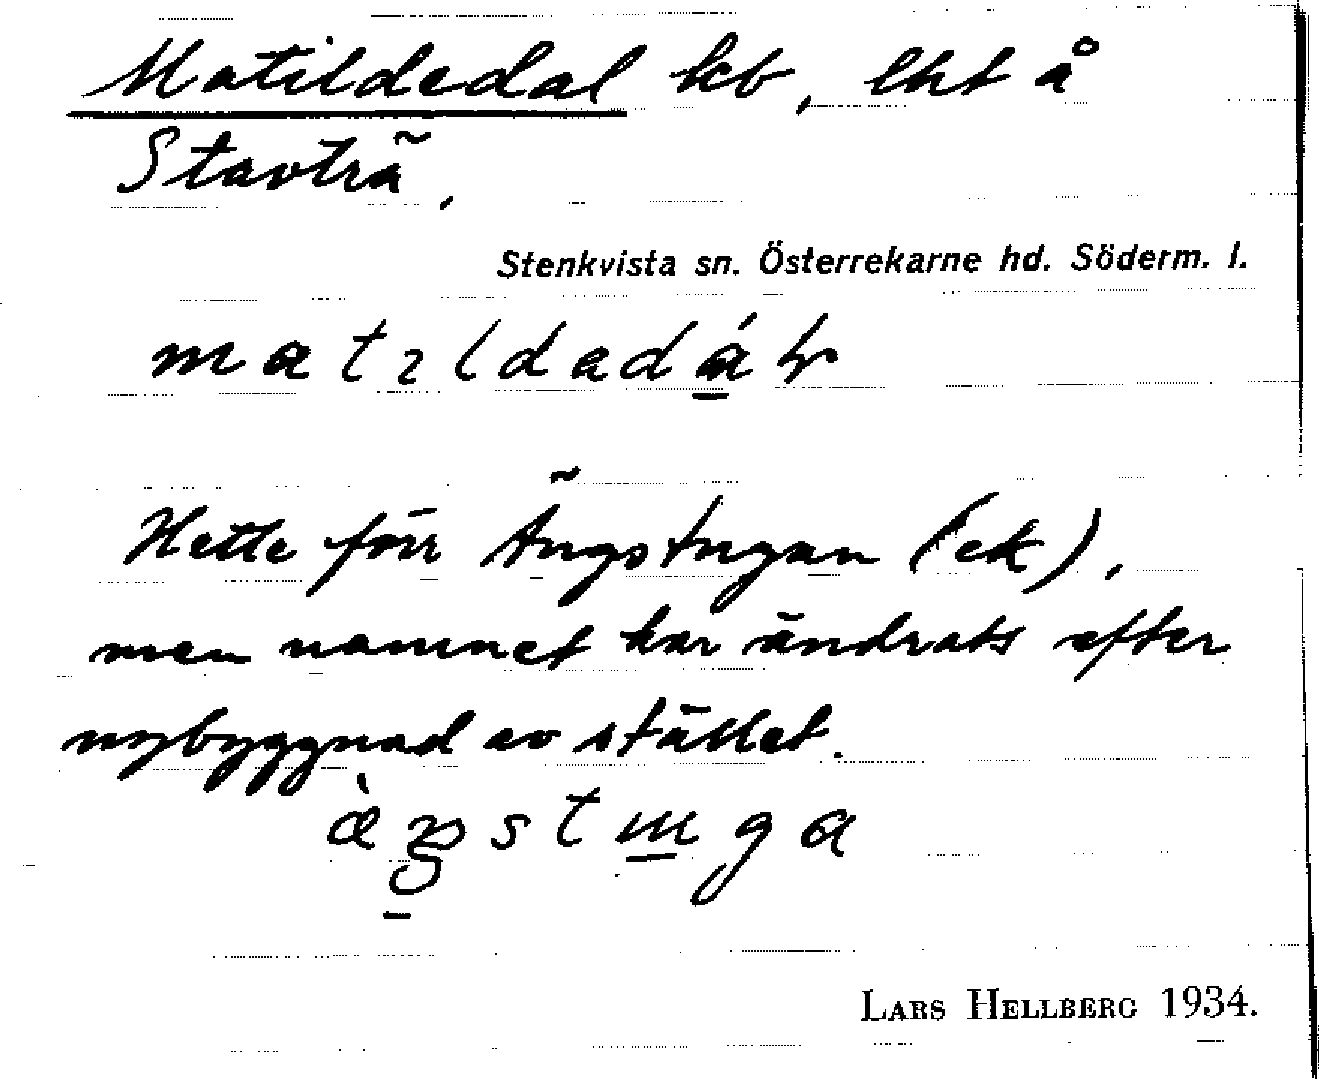 Matildedal kb, lht å
Stavträ,
Stenkvista sn. Österrekarne hd. Söderm. l.
matɩldadáɫ
Hette förr Ängstugan (ek),
men namnet har ändrats efter
nybyggnad av stället.
æ̀ŋstuga
LARS HELLBERG 1934.